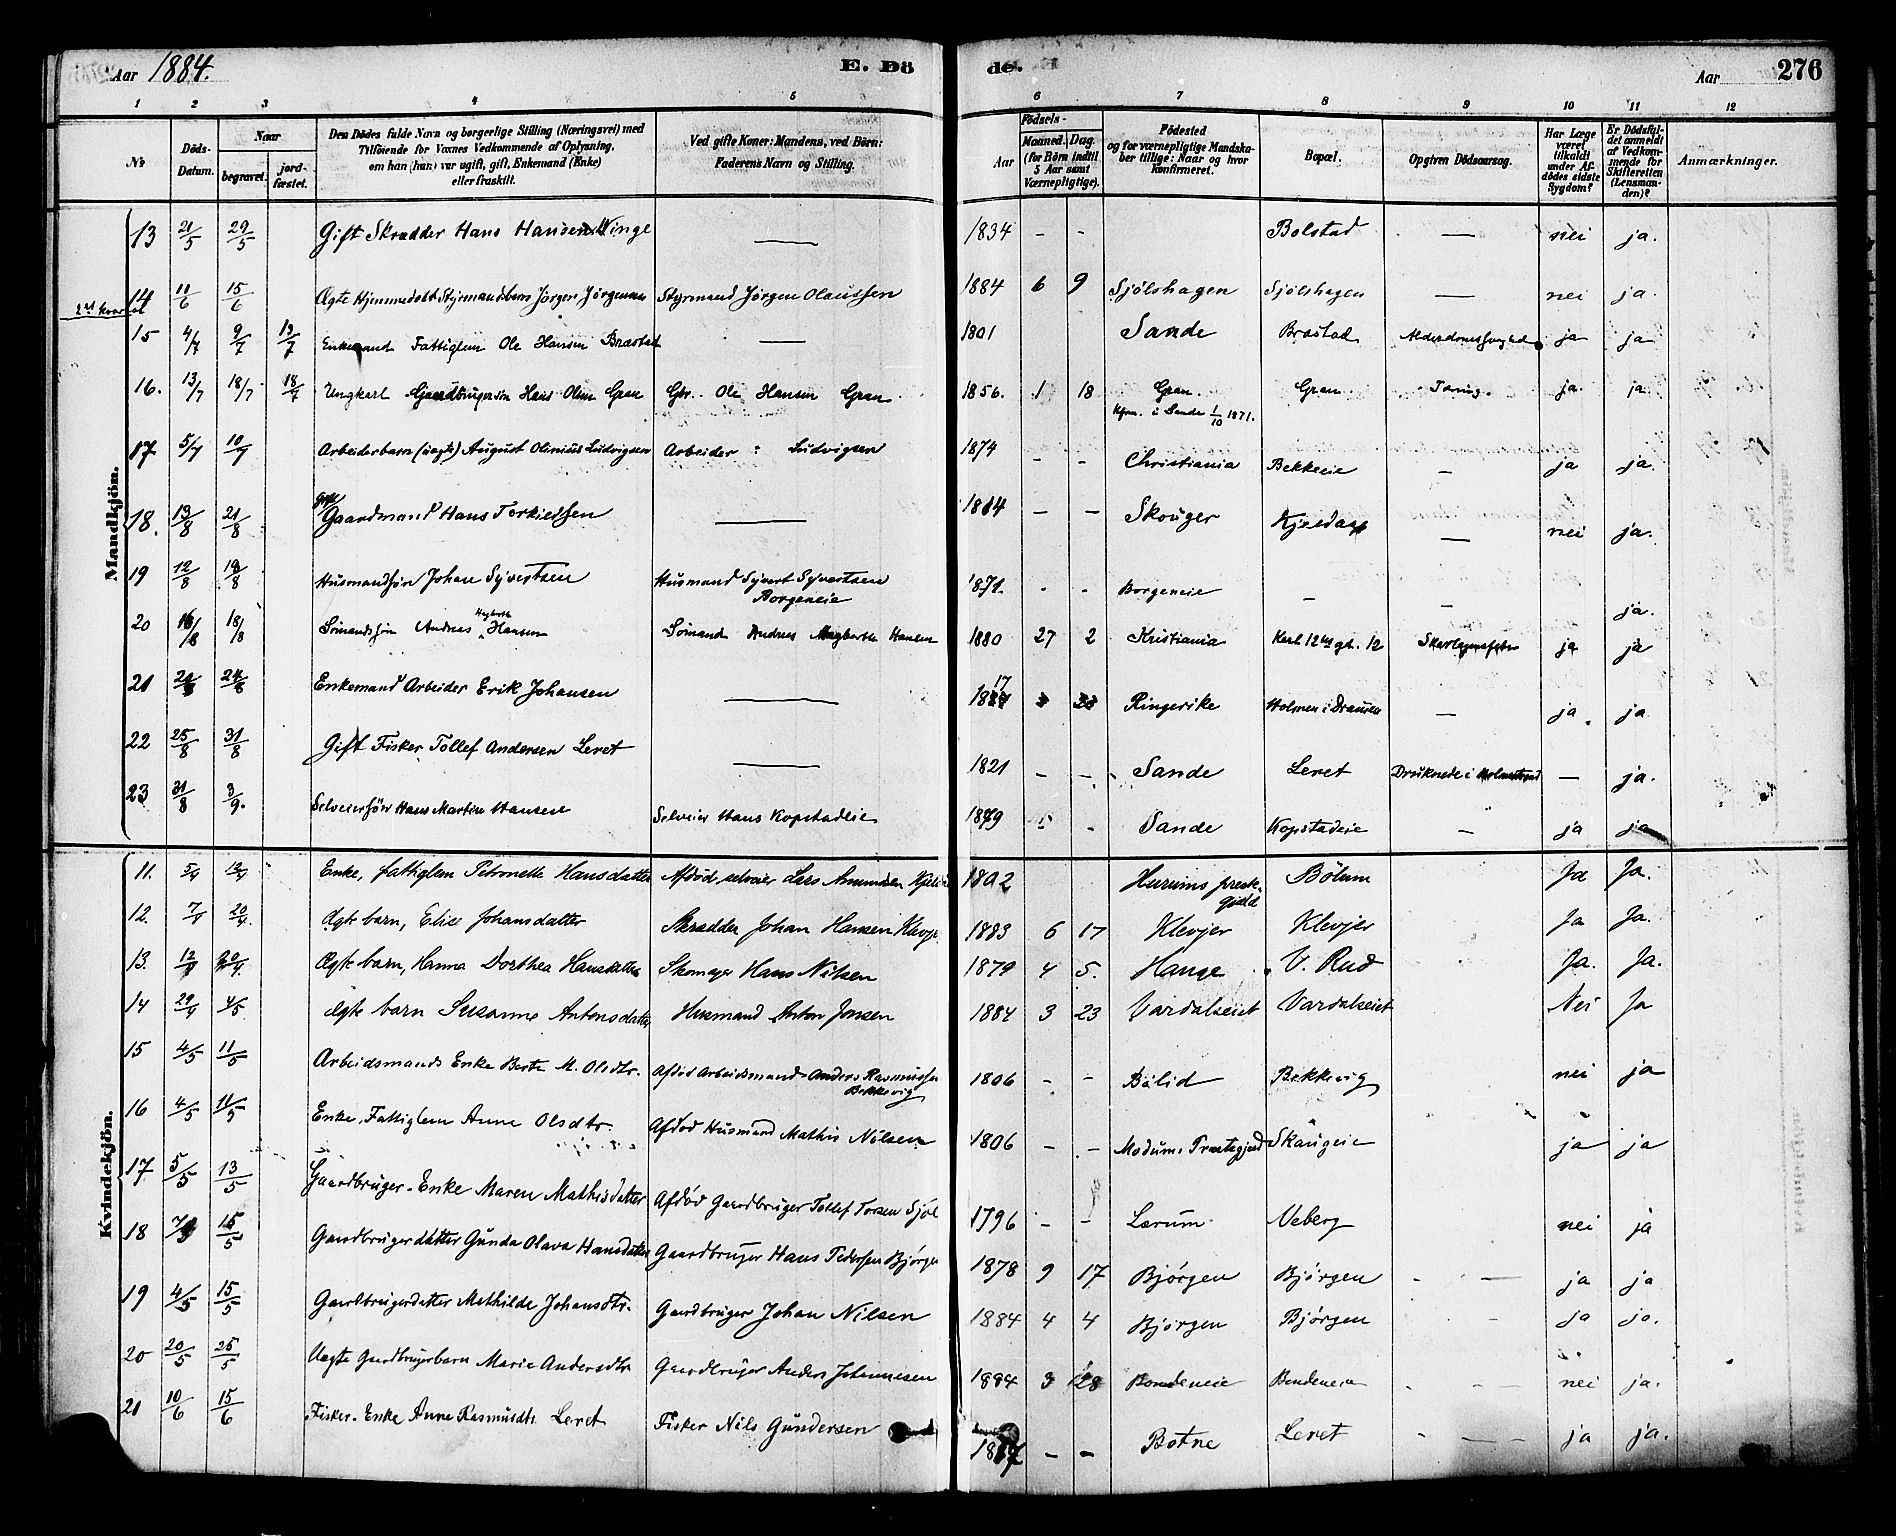 Aar 1884.
E. Dö
de.
Aar
276
1 2 3 4 5 6 7 8 9 10 11 12
No
Döds-Datum.
Naar
begravet.
jord-fæstet.
Den Dödes fulde Navn og borgerlige Stilling (Næringsvei) med
Tilföiende for Voxnes Vedkommende af Oplysning,
om han (hun) var ugift, gift, Enkemand (Enke)
eller fraskilt.
Ved gifte Koner: Mandens, ved Börn:
Faderens Navn og Stilling.
Födsels-
Aar
Maaned. Dag.
(for Börn indtil 5 Aar samt Værnepligtige).
Födested
og for værnepligtige Mandskaber tillige: Naar og hvor konfirmeret.
Bopæl.
Opgiven Dödsaarsag.
Har Læge været tilkaldt under Afdödes sidste Sygdom?
Er Dödsfaldet anmeldt af Vedkommende for Skifteretten (Lensmanden)?
Anmærkninger.
Mandkjön.
13 21/5 29/5 Gift Skrædder Hans Hansen Winge — 1834 - - Bolstad — nei ja.
14 11/6 15/6 Ægte Hjemmedøbt Styrmandsbarn Jørgen Jørgensen Styrmand Jørgen Olaussen 1884 6 9 Sjölshagen Sjölshagen — nei ja.
15 4/7 9/7 13/7 Enkemand Fattiglem Ole Hansen Brastad — 1801 Sande Brastad ja ja
16. 13/7 18/7 18/7 Ungkarl Gaardbrugersøn Hans Olsen Gran Gbr. Ole Hansen Gran 1856. 1 18 Gran. Gran. Tæring. ja ja
Kfrm. i Sande 1/10 1871.
17 5/7 10/7 Arbeiderbarn (uægte) August Olinius Ludvigsen Arbeider : Ludvigsen 1874 - - Christiania Bekkeeie — ja ja.
18. 13/8 21/8 Gift Gaardmand Hans Torkildsen — 1814 - - Skouger — nei ja.
19 12/8 18/8 Husmandssøn Johan Syvertsen Husmand Syvert Syvertsen Borgeneie 1871. - - Borgeneie — — ja.
20 16/8 18/8 Sømandssøn Andreas Hagbarth Hansen Sømand Andreas Hagbarth Hansen 1880 27 2 Kristiania Karl 12tes gt. 12 ja ja
21 20/8 24/8 Enkemand Arbeider Erik Johansen — 1817 Ringerike Holmen i Drammen — ja. ja
22 25/8 31/8 Gift Fisker Tollef Andersen Leret — 1821 - - Sande Leret Druknede i Holmestrand — ja.
23 31/8 3/9. Selveiersøn Hans Martin Hansen Selveier Hans Kopstadeie 1879 - Sande Kopstadeie — ja ja
Kvindekjön.
11. 5/4 13/4 Enke, fattiglem Petronelle Hansdatter Afdød selveier Lars Amundsen 1802 Hurums prestegjeld Bölum Ja Ja.
12. 7/4 20/4. Ægte barn, Elise Johansdatter Skrædder Johan Hansen Klevjer 1883 6 17 Klevjer Klevjer Ja Ja.
13. 12/4 20/4. Ægte barn, Hanna Dorthea Hansdatter Skomager Hans Nilsen 1879 4 5. Hauge V. Rud Ja. Ja.
14 29/4 4/5 Ægte barn Susanne Antonsdatter Husmand Anton Jonsen 1884 3 23 Vardalseiet Vardalseiet Nei Ja
15 4/5 11/5 Arbeidsmands Enke Berte M. Olsdtr. Afdød Arbeidsmand Anders Rasmussen Bekkevig 1806 - - Bölid Bekkevig nei ja
16 4/5 11/5 Enke, Fattiglem Anne Olsdtr. Afdød Husmand Mathis Nilsen 1806 - - Modums Præstegjeld Skaugeie ja ja
17 5/5 13/5 Gaardbruger-Enke Maren Mathisdatter Afdød Gaardbruger Tollef Torsen Sjöl 1796 - - Lerum Neberg nei ja
18 7/5 15/5 Gaardbrugerdatter Gunda Olava Hansdatter Gaardbruger Hans Pedersen Bjørgen 1878 9 17 Bjørgen Bjørgen - — ja ja
19 4/5 15/5 Gaardbrugerdatter Mathilde Johansdtr. Gaardbruger Johan Nilsen 1884 4 4 Bjørgen Bjørgen - ja ja.
20 20/5 25/5 Uægte Gaardbrugerbarn Marie Andersdtr Gaardbruger Anders Johannesen 1884 3 28 Bondeneie Bondeneie - — nei ja.
21 10/6 15/6 Fisker-Enke Anne Rasmusdtr. Leret Fisker Nils Gundersen 1817 - - Botne Leret - — ja ja.